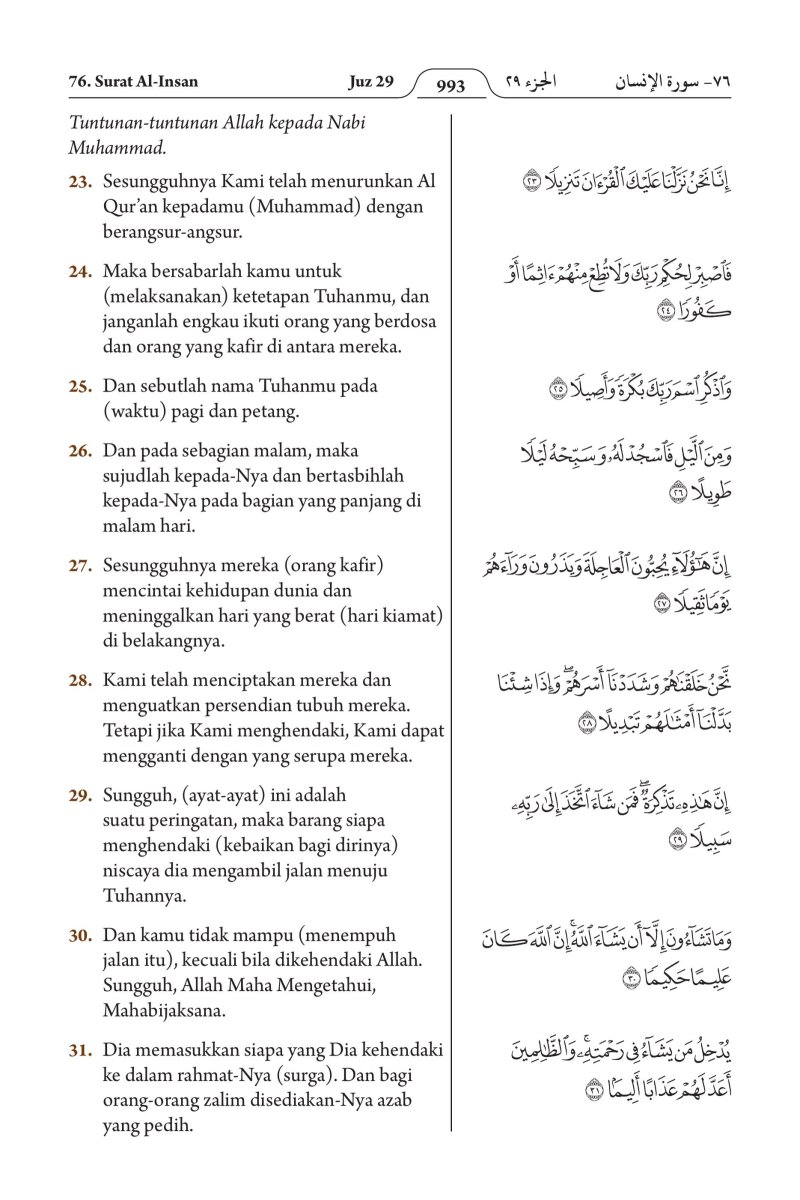 76. Surat Al-Insan Juz 29 993 الجزء ٢٩ ٧٦- سورة الإنسان
Tuntunan-tuntunan Allah kepada Nabi
Muhammad.
23. Sesungguhnya Kami telah menurunkan Al
Qur’an kepadamu (Muhammad) dengan
berangsur-angsur.
24. Maka bersabarlah kamu untuk
(melaksanakan) ketetapan Tuhanmu, dan
janganlah engkau ikuti orang yang berdosa
dan orang yang kafir di antara mereka.
25. Dan sebutlah nama Tuhanmu pada
(waktu) pagi dan petang.
26. Dan pada sebagian malam, maka
sujudlah kepada-Nya dan bertasbihlah
kepada-Nya pada bagian yang panjang di
malam hari.
27. Sesungguhnya mereka (orang kafir)
mencintai kehidupan dunia dan
meninggalkan hari yang berat (hari kiamat)
di belakangnya.
28. Kami telah menciptakan mereka dan
menguatkan persendian tubuh mereka.
Tetapi jika Kami menghendaki, Kami dapat
mengganti dengan yang serupa mereka.
29. Sungguh, (ayat-ayat) ini adalah
suatu peringatan, maka barang siapa
menghendaki (kebaikan bagi dirinya)
niscaya dia mengambil jalan menuju
Tuhannya.
30. Dan kamu tidak mampu (menempuh
jalan itu), kecuali bila dikehendaki Allah.
Sungguh, Allah Maha Mengetahui,
Mahabijaksana.
31. Dia memasukkan siapa yang Dia kehendaki
ke dalam rahmat-Nya (surga). Dan bagi
orang-orang zalim disediakan-Nya azab
yang pedih.
إِنَّا نَحْنُ نَزَّلْنَا عَلَيْكَ ٱلْقُرْءَانَ تَنزِيلًا ٢٣
فَٱصْبِرْ لِحُكْمِ رَبِّكَ وَلَا تُطِعْ مِنْهُمْ ءَاثِمًا أَوْ
كَفُورًا ٢٤
وَٱذْكُرِ ٱسْمَ رَبِّكَ بُكْرَةً وَأَصِيلًا ٢٥
وَمِنَ ٱلَّيْلِ فَٱسْجُدْ لَهُۥ وَسَبِّحْهُ لَيْلًا
طَوِيلًا ٢٦
إِنَّ هَٰٓؤُلَآءِ يُحِبُّونَ ٱلْعَاجِلَةَ وَيَذَرُونَ وَرَآءَهُمْ
يَوْمًا ثَقِيلًا ٢٧
نَّحْنُ خَلَقْنَٰهُمْ وَشَدَدْنَآ أَسْرَهُمْ ۖ وَإِذَا شِئْنَا
بَدَّلْنَآ أَمْثَٰلَهُمْ تَبْدِيلًا ٢٨
إِنَّ هَٰذِهِۦ تَذْكِرَةٌ ۖ فَمَن شَآءَ ٱتَّخَذَ إِلَىٰ رَبِّهِۦ
سَبِيلًا ٢٩
وَمَا تَشَآءُونَ إِلَّآ أَن يَشَآءَ ٱللَّهُ ۚ إِنَّ ٱللَّهَ كَانَ
عَلِيمًا حَكِيمًا ٣٠
يُدْخِلُ مَن يَشَآءُ فِى رَحْمَتِهِۦ ۚ وَٱلظَّٰلِمِينَ
أَعَدَّ لَهُمْ عَذَابًا أَلِيمًۢا ٣١